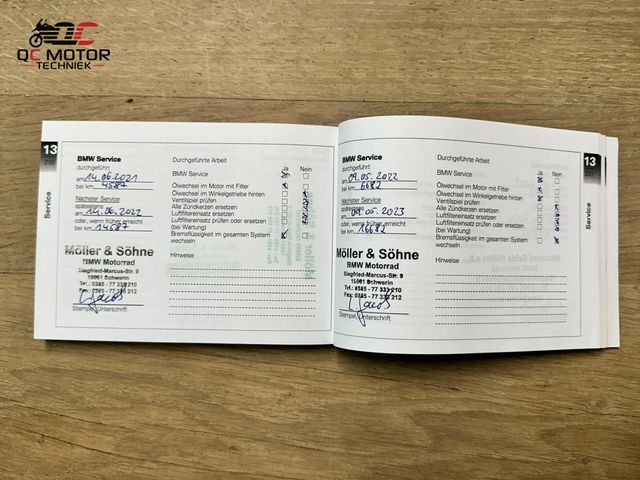 QC MOTOR
TECHNIEK
13
Service
BMW Service
durchgeführt
am 14.06.2021
bei km 4587
Nächster Service
spätestens
am 14.06.2022
oder, wenn früher erreicht
bei km 14587
Möller & Söhne
BMW Motorrad
Siegfried-Marcus-Str. 9
19061 Schwerin
Tel.: 0385 - 77 333 210
Fax: 0385 - 77 333 212
Stempel, Unterschrift
Durchgeführte Arbeit
Ja Nein
BMW Service
Ölwechsel im Motor mit Filter
Ölwechsel im Winkelgetriebe hinten
Ventilspiel prüfen
Alle Zündkerzen ersetzen
Luftfiltereinsatz ersetzen
Luftfiltereinsatz prüfen oder ersetzen
(bei Wartung)
Bremsflüssigkeit im gesamten System
wechseln
Hinweise
BMW Service
durchgeführt
am 09.05.2022
bei km 6682
Nächster Service
spätestens
am 09.05.2023
oder, wenn früher erreicht
bei km 16682
Möller & Söhne
BMW Motorrad
Siegfried-Marcus-Str. 9
19061 Schwerin
Tel.: 0385 - 77 333 210
Fax: 0385 - 77 333 212
Stempel, Unterschrift
Durchgeführte Arbeit
Ja Nein
BMW Service
Ölwechsel im Motor mit Filter
Ölwechsel im Winkelgetriebe hinten
Ventilspiel prüfen
Alle Zündkerzen ersetzen
Luftfiltereinsatz ersetzen
Luftfiltereinsatz prüfen oder ersetzen
(bei Wartung)
Bremsflüssigkeit im gesamten System
wechseln
Hinweise
13
Service